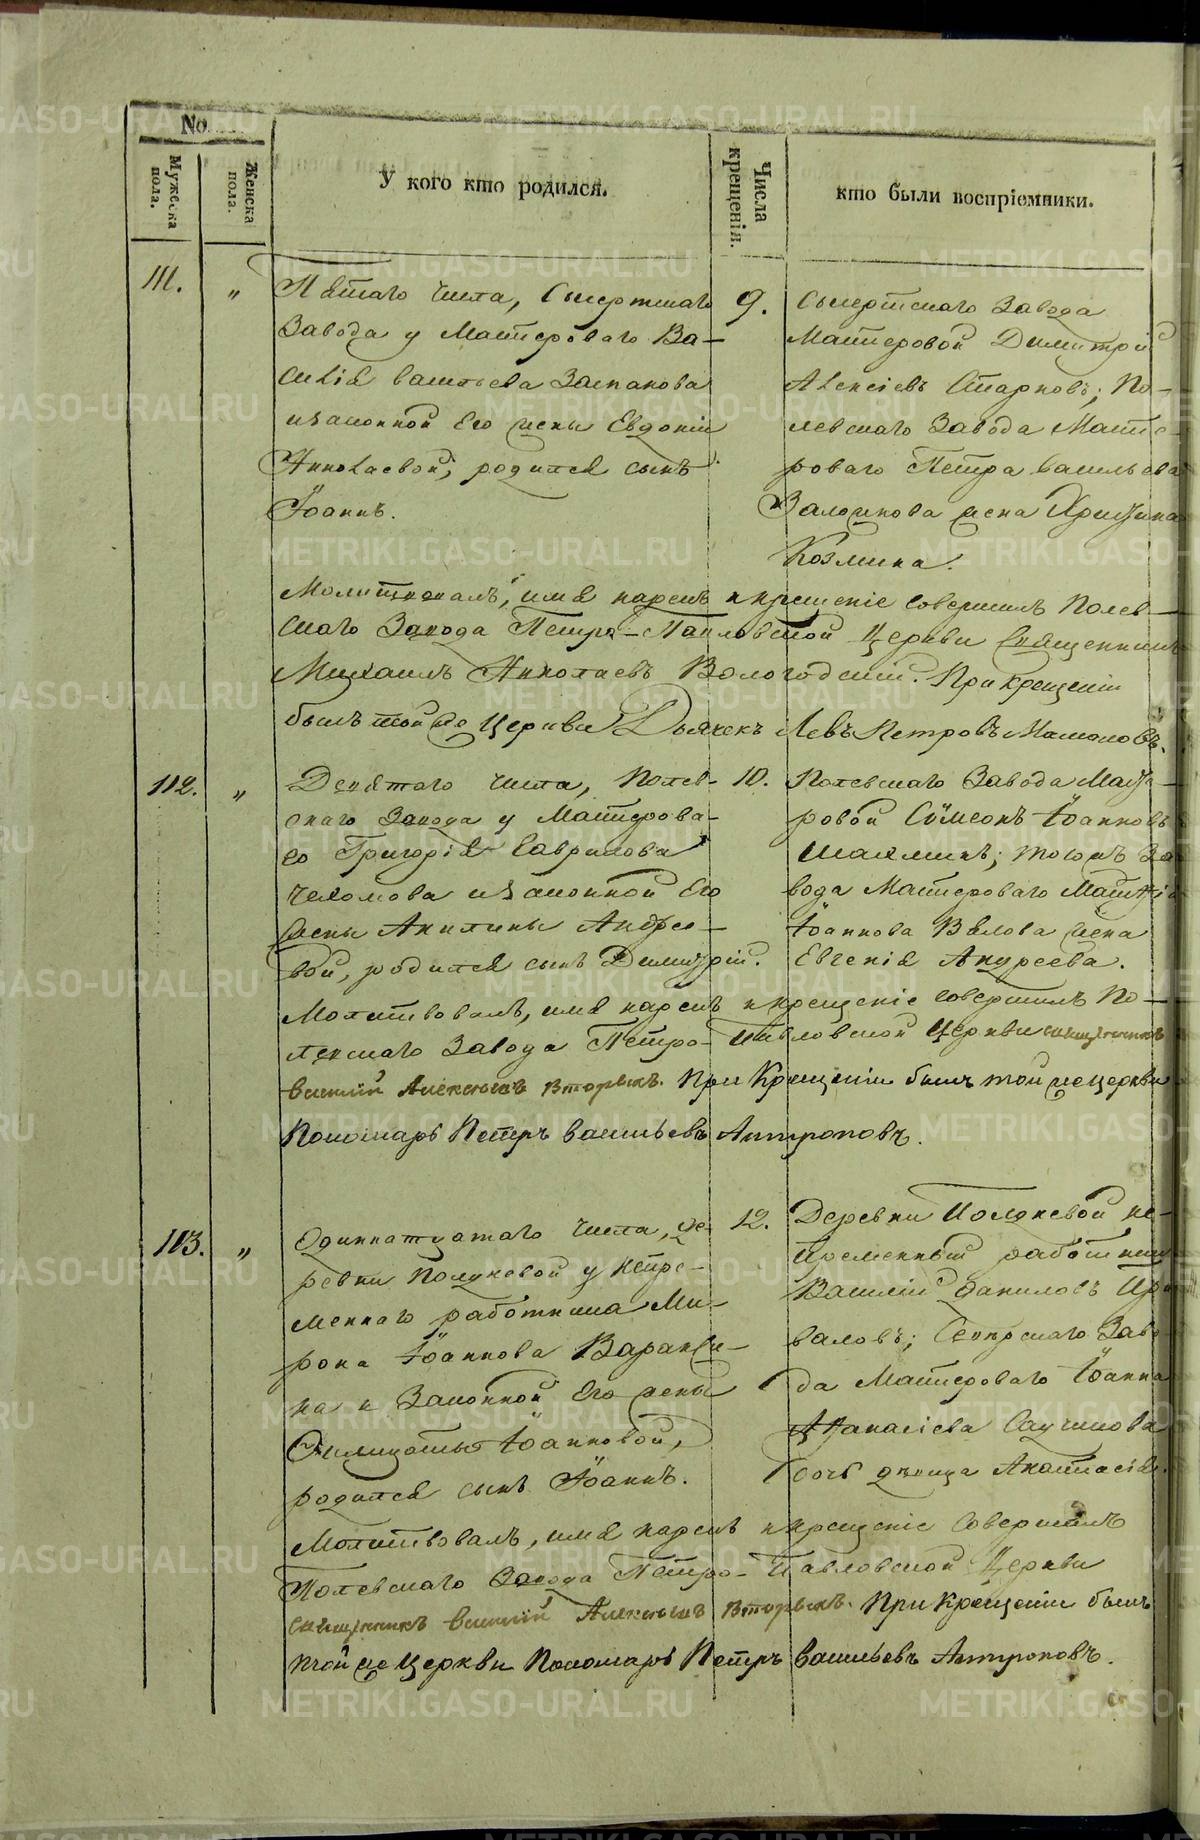 No
Мужеска пола.
Женска пола.
У кого кто родился.
Числа крещенія.
кто были воспріемники.
111. „ Пятаго числа, Сысертскаго
Завода у Мастероваго Ва-
силія Васильева
и законной его жены Евдокіи
Николаевой, родился сынъ
Іоаннъ.
9. Сысертскаго Завода
Мастеровой Димитрій
Алексіевъ Старковъ; По-
левскаго Завода Масте-
роваго Петра Васильева
жена
Козмина.
Молитвовалъ, имя нарекъ и крещеніе совершилъ Полев-
скаго Завода Петро-Павловской Церкви Священникъ
Михаилъ Николаевъ Вологодскій. При крещеніи
былъ той же Церкви Дьячекъ Левъ Петровъ
112. „ Девятого числа, Полев-
скаго Завода у Мастерова-
го Григорія Гаврилова
и законной его
жены Акилины Андрее-
вой, родился сынъ Димитрій.
10. Полевскаго Завода Масте-
ровой Сѵмеонъ Іоанновъ
тогожъ За-
вода Мастероваго
Іоаннова Бѣлова жена
Евгенія Андреева.
Молитвовалъ, имя нарекъ и крещеніе совершилъ По-
левскаго Завода Петро-Павловской Церкви священникъ
Василій Алексѣевъ Вторыхъ. При Крещеніи былъ той же церкви
Пономарь Петръ Васильевъ Антроповъ.
113. „ Одиннатцатаго числа, де-
ревни Полдневой у непре-
меннаго работника Ми-
рона Іоаннова Варакси-
на и Законной его жены
Іоанновой,
родился сынъ Іоаннъ.
12. Деревни Полдневой не-
пременный работникъ
Василій Даниловъ
Сѣверскаго Заво-
да Мастероваго Іоанна
Аѳанасіева
дочь дѣвица Анастасія.
Молитвовалъ, имя нарекъ и крещеніе совершилъ
Полевскаго Завода Петро-Павловской Церкви
священникъ Василій Алексѣевъ Вторыхъ. При Крещеніи былъ
той же Церкви Пономарь Петръ Васильевъ Антроповъ.
METRIKI.GASO-URAL.RU